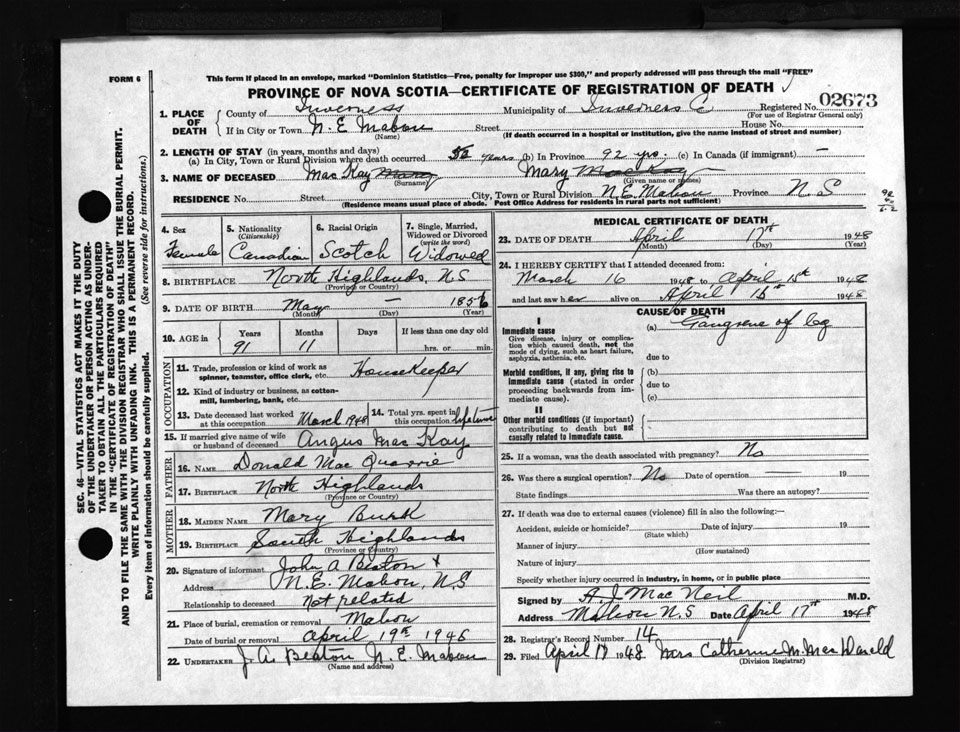 FORM 6
This form if placed in an envelope, marked "Dominion Statistics—Free, penalty for improper use $300," and properly addressed will pass through the mail "FREE"
PROVINCE OF NOVA SCOTIA—CERTIFICATE OF REGISTRATION OF DEATH
02673
1. PLACE OF DEATH
County of Inverness Municipality of Inverness C Registered No.
(For use of Registrar General only)
If in City or Town N. E. Mabou Street House No.
(Name) (If death occurred in a hospital or institution, give the name instead of street and number)
2. LENGTH OF STAY (in years, months and days)
(a) In City, Town or Rural Division where death occurred 52 years (b) In Province 92 yrs. (c) In Canada (if immigrant) —
3. NAME OF DECEASED Mac Kay Mary Mary
(Surname) (Given name or names)
RESIDENCE No. Street City, Town or Rural Division N.E. Mabou Province N S
(Residence means usual place of abode. Post Office Address for residents in rural parts not sufficient)
4. Sex
Female
5. Nationality
(Citizenship)
Canadian
6. Racial Origin
Scotch
7. Single, Married, Widowed or Divorced
(write the word)
Widowed
8. BIRTHPLACE North Highlands, N.S
(Province or Country)
9. DATE OF BIRTH May — 1856
(Month) (Day) (Year)
10. AGE in Years Months Days If less than one day old
91 11 hrs. or min.
OCCUPATION
11. Trade, profession or kind of work as spinner, teamster, office clerk, etc. Housekeeper
12. Kind of industry or business, as cotton-mill, lumbering, bank, etc.
13. Date deceased last worked at this occupation March 1948
14. Total yrs. spent in this occupation lifetime
15. If married give name of wife or husband of deceased Angus Mac Kay
FATHER
16. NAME Donald Mac Quarrie
17. BIRTHPLACE North Highlands
(Province or Country)
MOTHER
18. MAIDEN NAME Mary Burk
19. BIRTHPLACE South Highlands
(Province or Country)
20. Signature of informant John A Beaton
Address N.E. Mabou, N.S
Relationship to deceased Not related
21. Place of burial, cremation or removal Mabou
Date of burial or removal April 19th 1948
22. UNDERTAKER J. A. Beaton N. E. Mabou
(Name and address)
MEDICAL CERTIFICATE OF DEATH
23. DATE OF DEATH April 17th 1948
(Month) (Day) (Year)
24. I HEREBY CERTIFY that I attended deceased from:
March 16 1948 to April 15th 1948
and last saw her alive on April 15th 1948
CAUSE OF DEATH
I
Immediate cause
Give disease, injury or complication which caused death, not the mode of dying, such as heart failure, asphyxia, asthenia, etc.
(a) Gangrene of leg
due to
Morbid conditions, if any, giving rise to immediate cause (stated in order proceeding backwards from immediate cause).
(b)
due to
(c)
II
Other morbid conditions (if important) contributing to death but not causally related to immediate cause.
25. If a woman, was the death associated with pregnancy? No
26. Was there a surgical operation? No Date of operation 19
State findings Was there an autopsy?
27. If death was due to external causes (violence) fill in also the following:—
Accident, suicide or homicide? Date of injury 19
(State which)
Manner of injury
(How sustained)
Nature of injury
Specify whether injury occurred in industry, in home, or in public place
Signed by A. J. Mac Neil M.D.
Address Mabou N.S Date April 17th 1948
28. Registrar's Record Number 14
29. Filed April 19 1948 Mrs Catherine M. Mac Donald
(Division Registrar)
SEC. 46—VITAL STATISTICS ACT MAKES IT THE DUTY
OF THE UNDERTAKER OR PERSON ACTING AS UNDERTAKER TO OBTAIN ALL THE PARTICULARS REQUIRED
IN THE "CERTIFICATE OF REGISTRATION OF DEATH"
AND TO FILE THE SAME WITH THE DIVISION REGISTRAR WHO SHALL ISSUE THE BURIAL PERMIT.
WRITE PLAINLY WITH UNFADING INK. THIS IS A PERMANENT RECORD.
Every item of information should be carefully supplied. (See reverse side for instructions.)